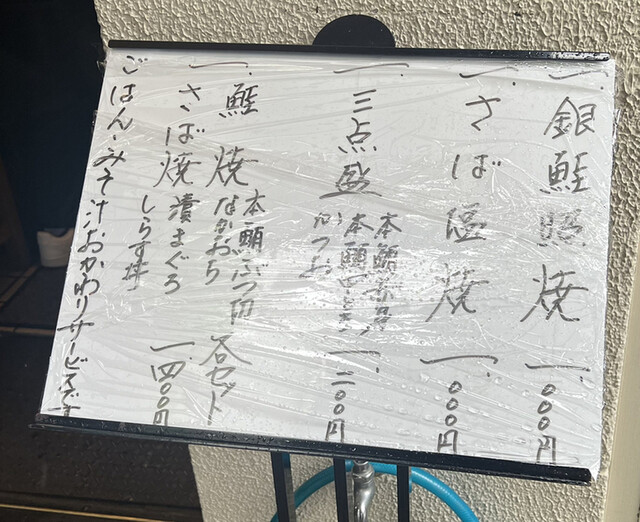 一、銀鮭照焼 一、〇〇〇円
一、さば塩焼 一、〇〇〇円
一、三点盛 一、二〇〇円
本鮪
本鮪
かつお
一、鮭焼 各セット
さば焼 一、四〇〇円
本鮪ぶつ切
なかおち
漬まぐろ
しらす丼
ごはん・みそ汁おかわりサービスです